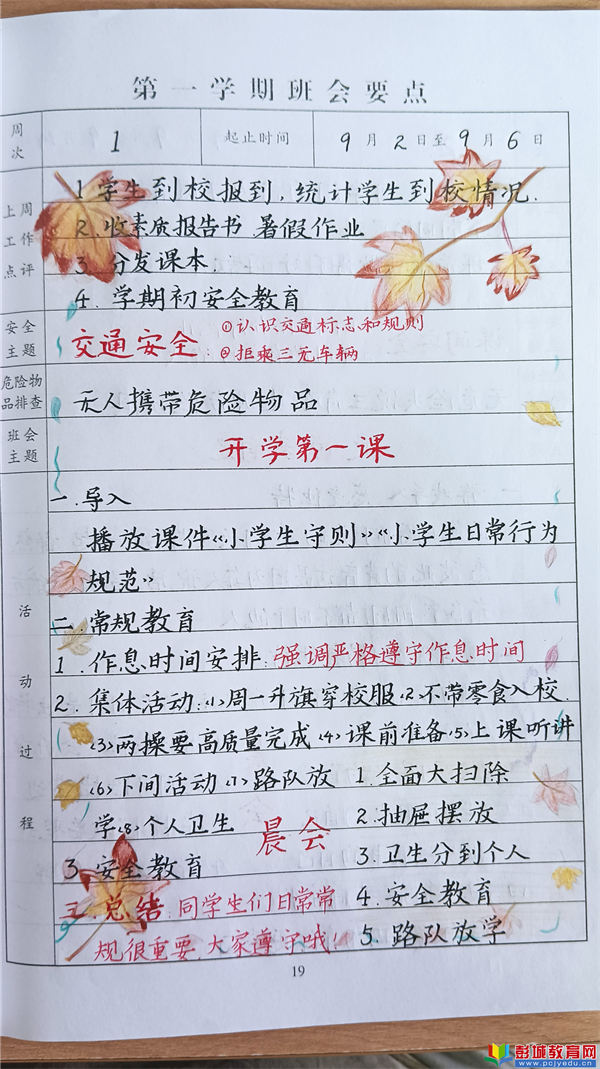 第一学期班会要点
周次 1 起止时间 9月2日至9月6日
上周工作点评
1 学生到校报到,统计学生到校情况.
2.收素质报告书.暑假作业
3.分发课本.
4.学期初安全教育
安全主题
交通安全:①认识交通标志和规则
②拒乘三无车辆
危险物品排查
无人携带危险物品
班会主题
开学第一课
活动过程
一.导入
播放课件《小学生守则》《小学生日常行为
规范》
二.常规教育
1.作息时间安排:强调严格遵守作息时间
2.集体活动:(1)周一升旗穿校服(2)不带零食入校.
(3)两操要高质量完成(4)课前准备(5)上课听讲
(6)下间活动(7)路队放
学(8)个人卫生
3.安全教育
三.总结:同学生们日常常
规很重要,大家遵守哦!
晨会
1.全面大扫除
2.抽屉摆放
3.卫生分到个人
4.安全教育
5.路队放学
19
彭城教育网
www.pcjyedu.cn